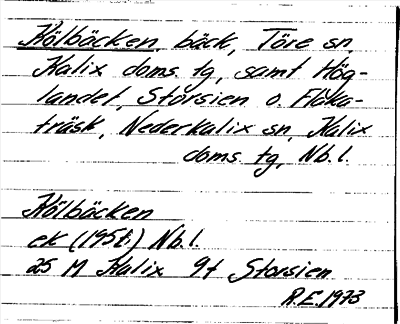 Kölbäcken, bäck, Töre sn,
Kalix doms. tg, samt Hög-
landet, Storsien o. Flåka-
träsk, Nederkalix sn, Kalix
doms. tg, Nb. l.
Kölbäcken
ek (1951) Nb. l.
25 M Kalix 9f Storsien
R.E. 1973